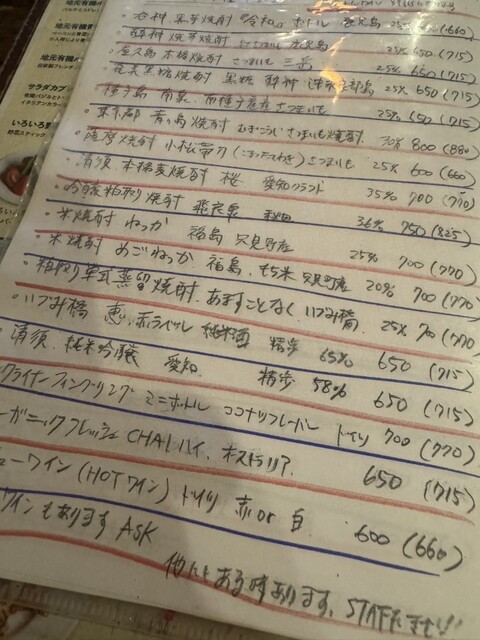 地元有機
サラダカブ
野菜スティック
黒芋焼酎 令和 ボトル 鹿児島 25% 600 (660)
焼芋焼酎 さつまいも 鹿児島 25% 650 (715)
屋久島 本格焼酎 さつまいも 三岳 25% 650 (715)
奄美黒糖焼酎 黒糖 25% 650 (715)
種子島 南泉 さつまいも 25% 650 (715)
東京都 青ヶ島焼酎 むぎこうじ さつまいも焼酎 30% 800 (880)
薩摩焼酎 小松帯刀 (こまつたてわき) さつまいも 25% 600 (660)
清須 本格麦焼酎 桜 愛知クラフト 35% 700 (770)
吟醸粕取り焼酎 飛良泉 秋田 36% 750 (825)
・米焼酎 ねっか 福島 只見町産 25% 700 (770)
・米焼酎 めごねっか 福島 もち米 只見町産 20% 700 (770)
・粕取り 単式蒸留焼酎 あますことなく いづみ橋 25% 700 (770)
・いづみ橋 恵 赤ラベル 純米酒 精歩 65% 650 (715)
清須 純米吟醸 愛知 精歩 58% 650 (715)
クライナーファイグリング ミニボトル ココナツフレーバー ドイツ 700 (770)
ーガニックフレッシュ CHAIハイ、 650 (715)
ューワイン (HOTワイン) ドイツ 赤 or 白 600 (660)
ワインもあります ASK
他にもある時あります、STAFFまで!!